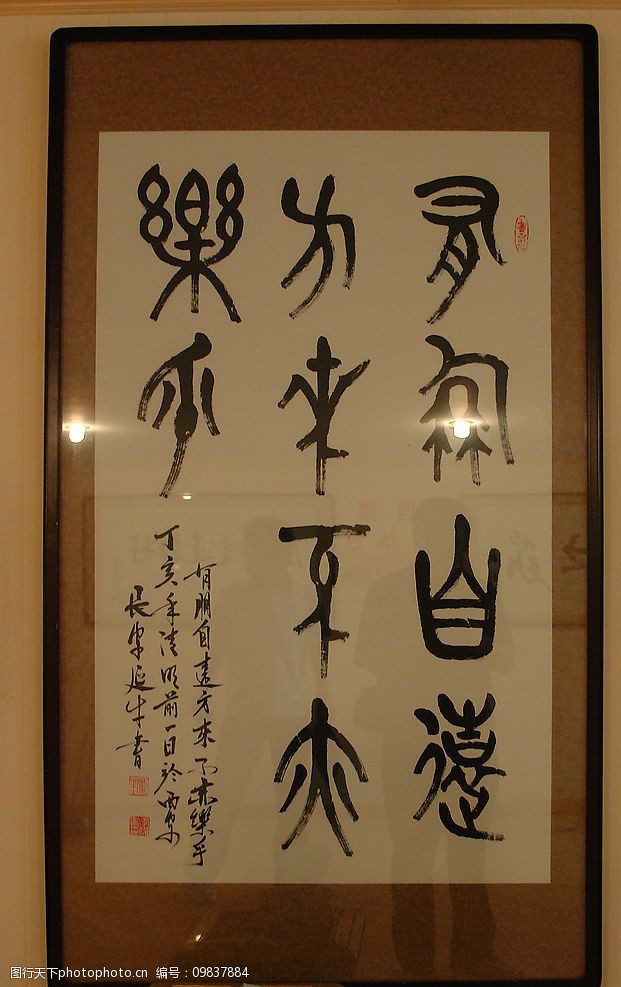 有朋自遠
方來不亦
樂乎
有朋自遠方來不亦樂乎
丁亥年清明前一日於西
延年書
图行天下photophoto.cn 编号：09837884